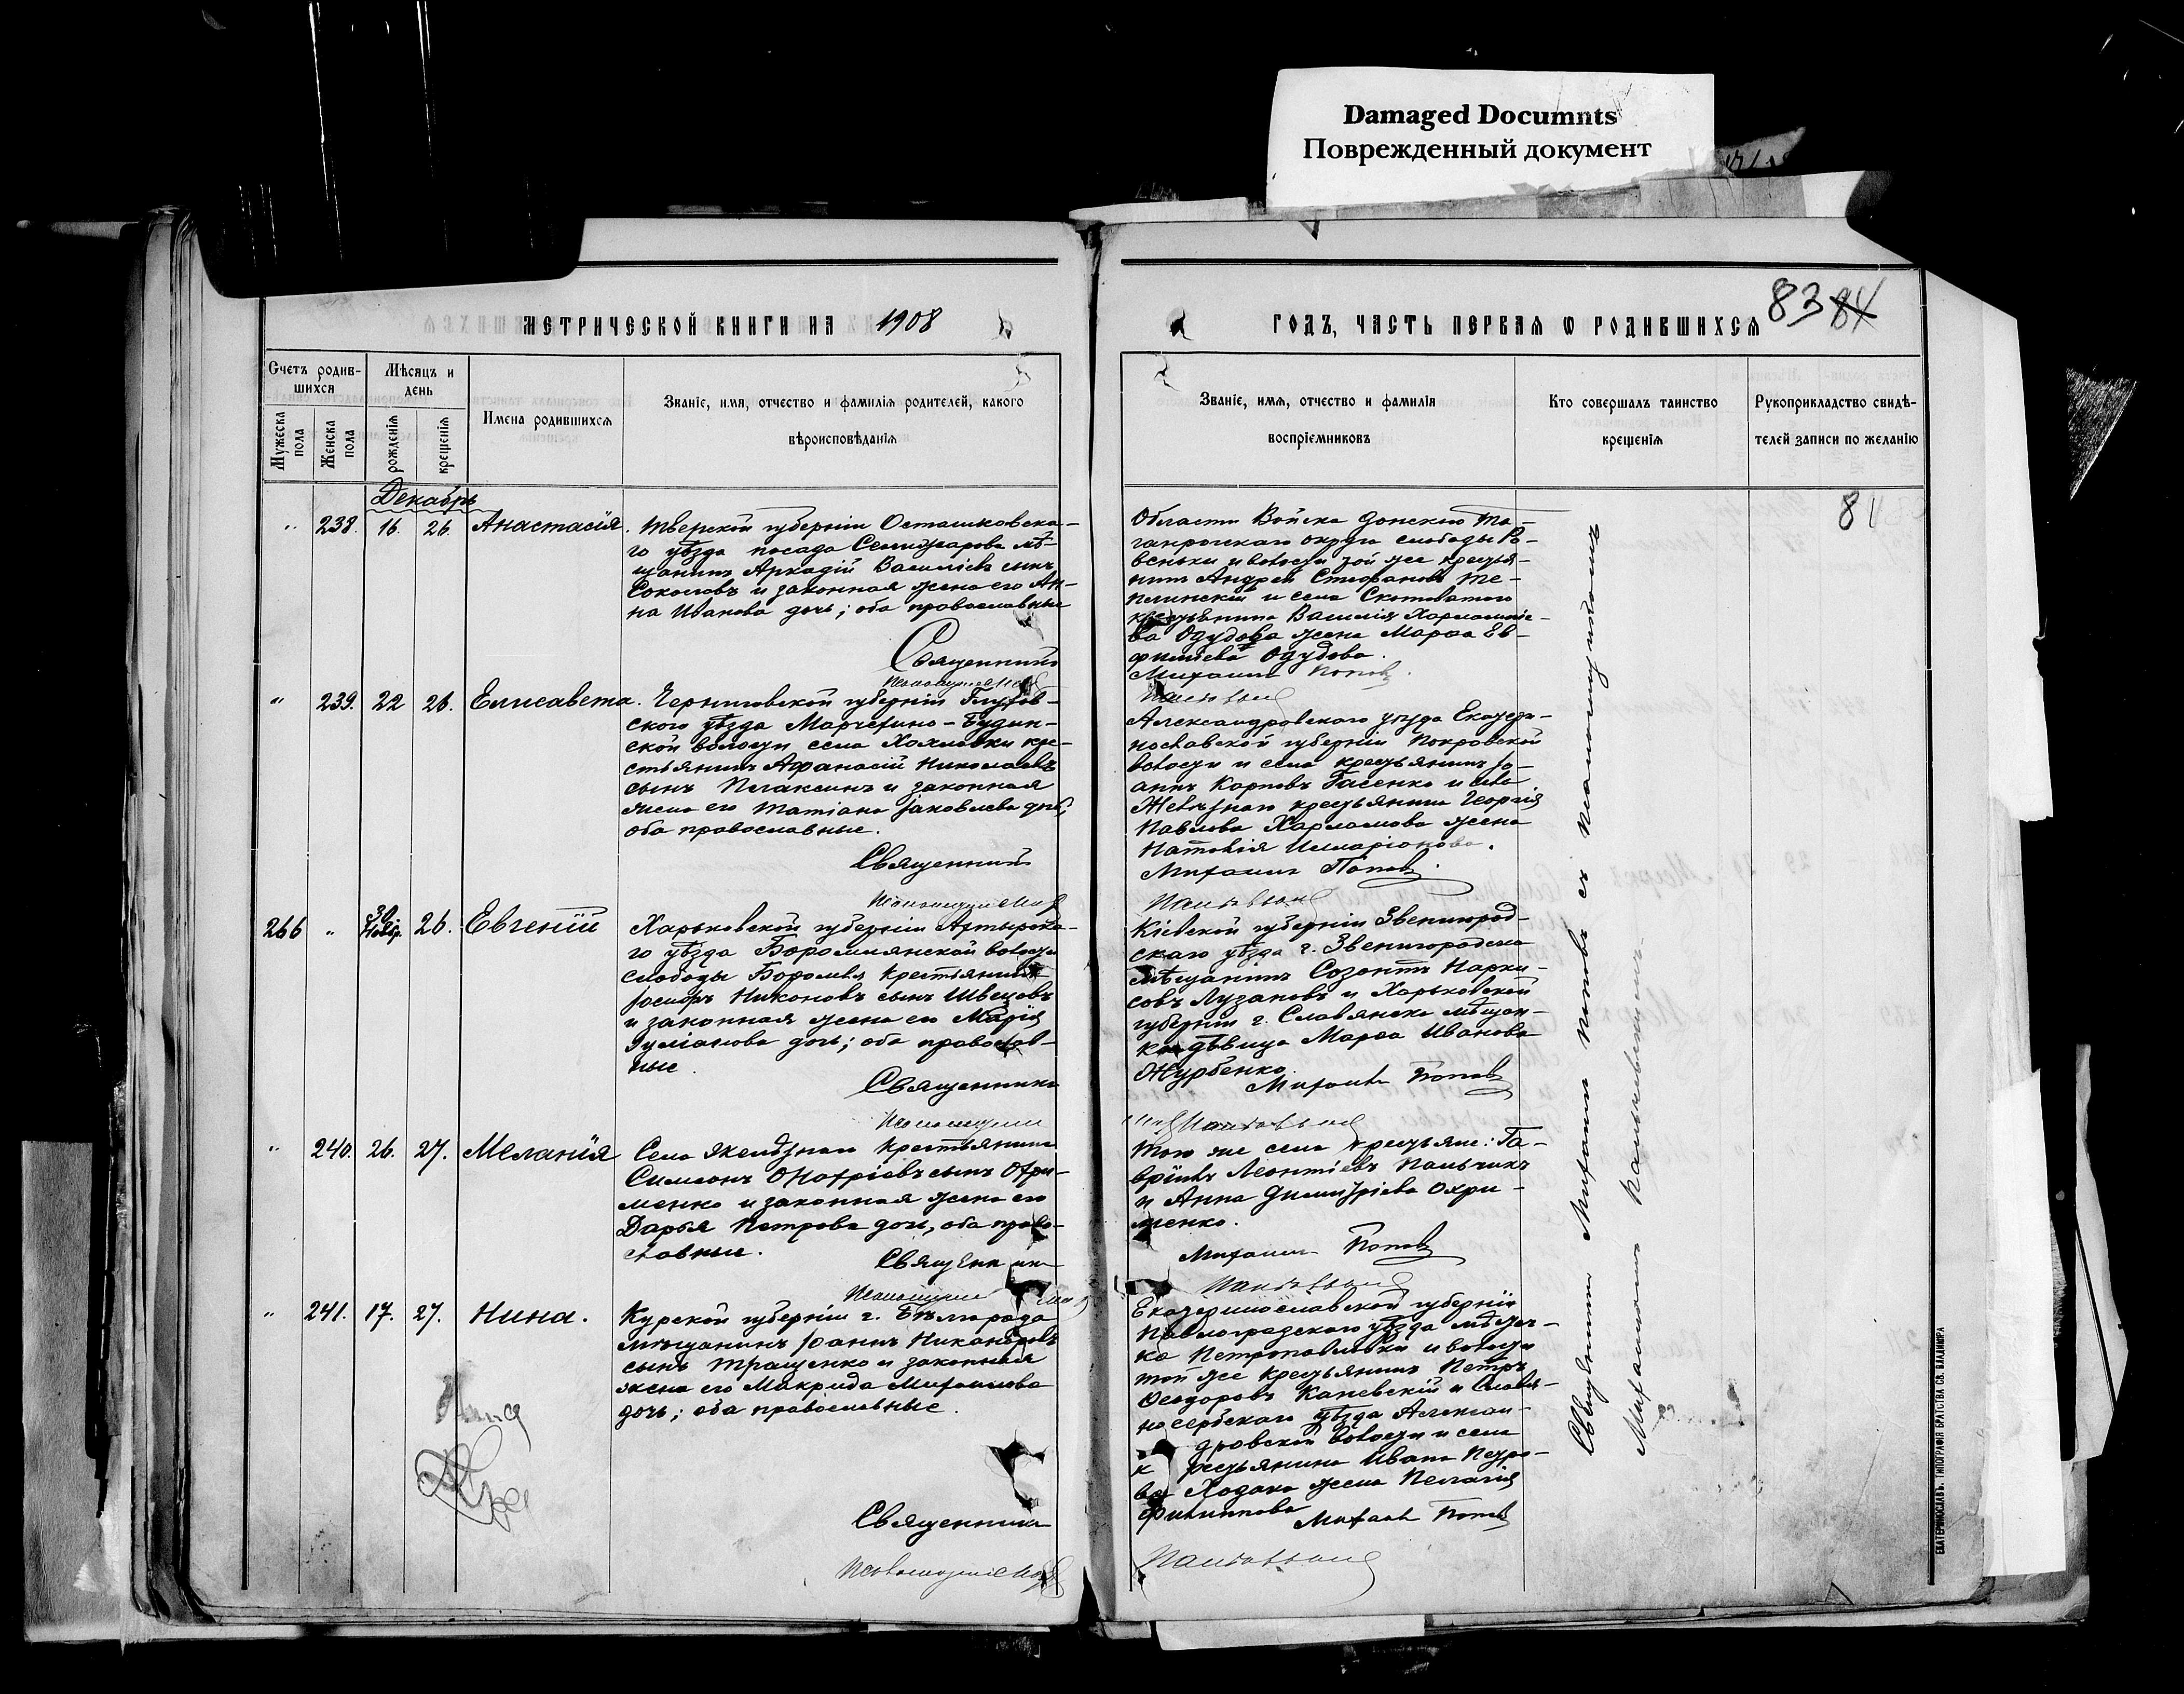 Damaged Documnts
Поврежденный документ
МЕТРИЧЕСКОЙ КНИГИ НА 1908
ГОДЪ, ЧАСТЬ ПЕРВАЯ Ѡ РОДИВШИХСЯ
83 84
Счетъ родив-
шихся
Мужеска пола
Женска пола
Мѣсяцъ и
день
рожденія
крещенія
Имена родившихся
Званіе, имя, отчество и фамилія родителей, какого
вѣроисповѣданія
Званіе, имя, отчество и фамилія
воспріемниковъ
Кто совершалъ таинство
крещенія
Рукоприкладство свидѣ-
телей записи по желанію
Декабрь
" 238. 16. 26. Анастасія.
Тверской губерніи Осташковска-
го уѣзда посада Селижарова мѣ-
щанинъ Аркадій Василіевъ сынъ
Соколовъ и законная жена его Ан-
на Иванова дочь; оба православные
Священникъ
Области Войска Донского Та-
ганрогскаго округа слободы Ро-
веньки и волости той же крестья-
нинъ Андрей Стефановъ Те-
плинскій и села Скотоватого
крестьянина Василія Харлампіе-
ва Одудова жена Марѳа Ев-
фиміева Одудова.
Михаилъ Поповъ
81
" 239. 22 26. Елисавета.
Черниговской губерніи Глухов-
ского уѣзда Марчехино-Будин-
ской волости села Хохловки кре-
стьянинъ Аѳанасій Николаевъ
сынъ Плаксинъ и законная
жена его Татіана Іаковлева дочь;
оба православные.
Священникъ
Александровскаго уѣзда Екатери-
нославской губерніи Покровской
волости и села крестьянинъ Іо-
аннъ Карповъ Гасенко и села
Желѣзнаго крестьянина Георгія
Павлова Харламова жена
Наталія Илларіонова.
Михаилъ Поповъ
266 " 30 Ноябр. 26. Евгеній
Харьковской губерніи Ахтырска-
го уѣзда Боромлянской волости
слободы Боромля крестьянинъ
Іосифъ Никоновъ сынъ Швецовъ
и законная жена его Марія
Іуліанова дочь; оба православ-
ные.
Священникъ
Кіевской губерніи Звенигород-
скаго уѣзда г. Звенигородка
мѣщанинъ Созонтъ Нарки-
совъ Лузановъ и Харьковской
губерніи г. Славянска мѣщан-
ка дѣвица Марѳа Иванова
Журбенко.
Михаилъ Поповъ
" 240. 26. 27. Меланія
Села Желѣзнаго крестьянинъ
Симеонъ Онофріевъ сынъ Охри-
менко и законная жена его
Дарья Петрова дочь, оба право-
славные.
Священникъ
Того же села крестьяне: Га-
вріилъ Леонтіевъ Пальчикъ
и Анна Димитріева Охри-
менко.
Михаилъ Поповъ
" 241. 17. 27. Нина.
Курской губерніи г. Бѣлгорода
мѣщанинъ Іоаннъ Никаноровъ
сынъ Тращенко и законная
жена его Макрида Михаилова
дочь; оба православные.
Священникъ
Екатеринославской губерніи
Павлоградскаго уѣзда мѣстеч-
ка Петропавловки и волости
той же крестьянинъ Петръ
Ѳеодоровъ Каневскій и Славя-
носербскаго уѣзда Алексан-
дровской волости и села
крестьянина Ивана Петро-
ва Ходака жена Пелагія
Филиппова
Михаилъ Поповъ
Священникъ Михаилъ Поповъ съ псаломщикомъ
Михаиломъ
ЕКАТЕРИНОСЛАВЪ. ТИПОГРАФІЯ БРАТСТВА СВ. ВЛАДИМІРА